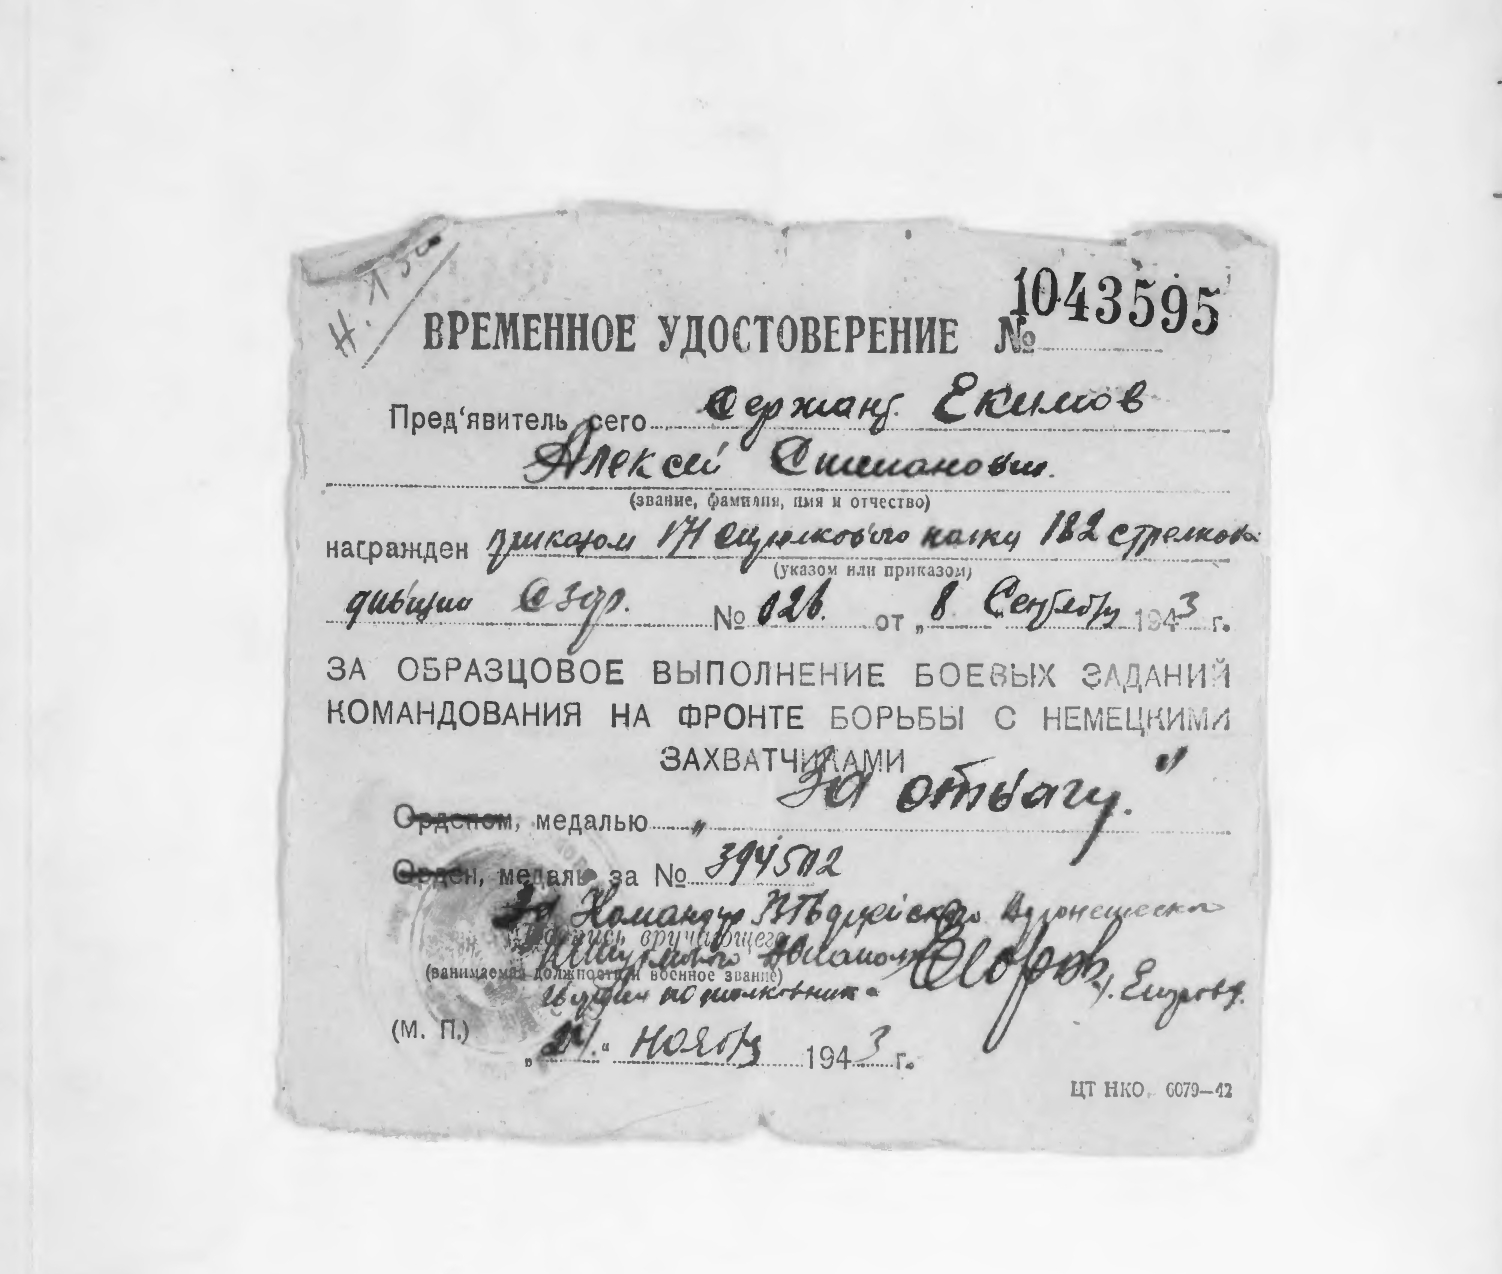 ВРЕМЕННОЕ УДОСТОВЕРЕНИЕ № 1043595
Пред'явитель сего Сержант Екимов
Алексей
(звание, фамилия, имя и отчество)
награжден приказом 171 стрелкового полка 182 стрелков.
(указом или приказом)
дивизии СЗФр. № 026. от „8 Сентября 1943 г.
ЗА ОБРАЗЦОВОЕ ВЫПОЛНЕНИЕ БОЕВЫХ ЗАДАНИЙ
КОМАНДОВАНИЯ НА ФРОНТЕ БОРЬБЫ С НЕМЕЦКИМИ
ЗАХВАТЧИКАМИ
Орденом, медалью „За отвагу."
Орден, медаль за № 394502
Командир Гвардейского
вручающего
(занимаемая должность и военное звание)
гвардии подполковник
(М. П.)
„24." Ноября 1943 г.
ЦТ НКО. 6079—42